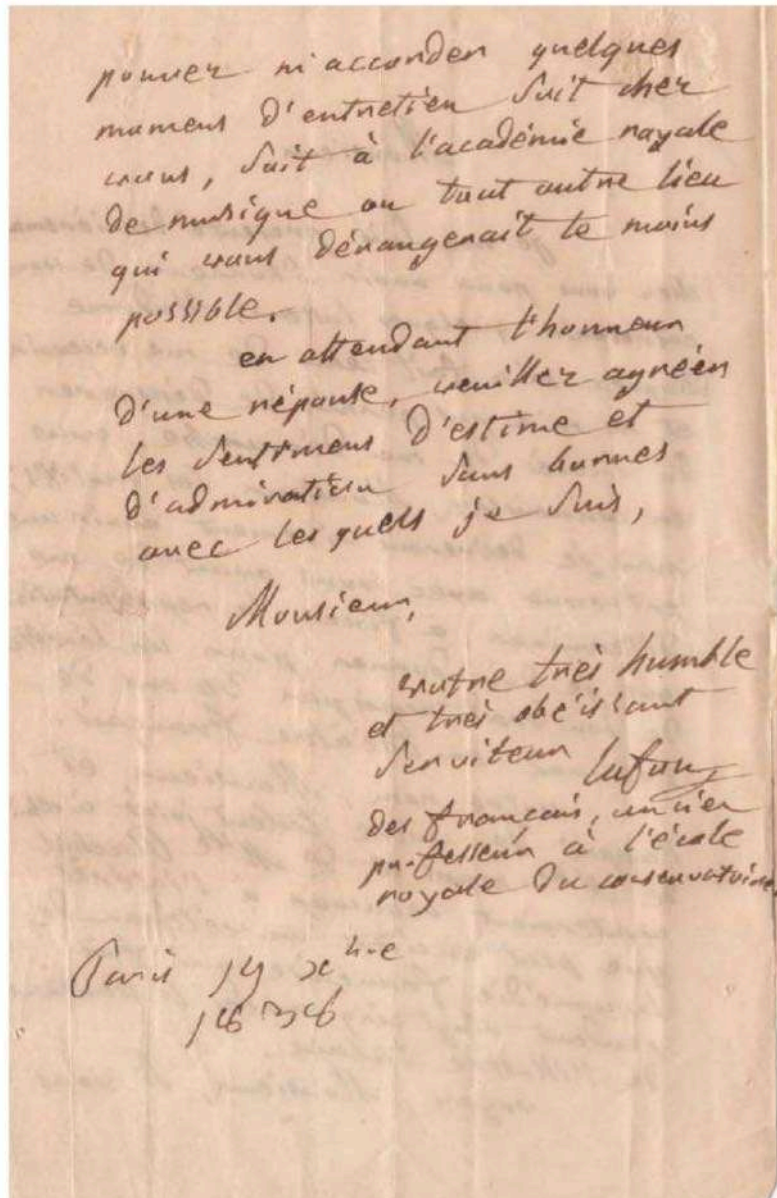 pouvez m'accorder quelques
momens d'entretien soit chez
vous, soit à l'académie royale
de musique ou tout autre lieu
qui vous dérangerait le moins
possible.
en attendant l'honneur
d'une réponse, veuillez agréer
les sentimens d'estime et
d'admiration sans bornes
avec lesquels je suis,
Monsieur,
votre très humble
et très obéissant
serviteur lafon
des français, ancien
professeur à l'école
royale du conservatoire.
Paris 19 xbre